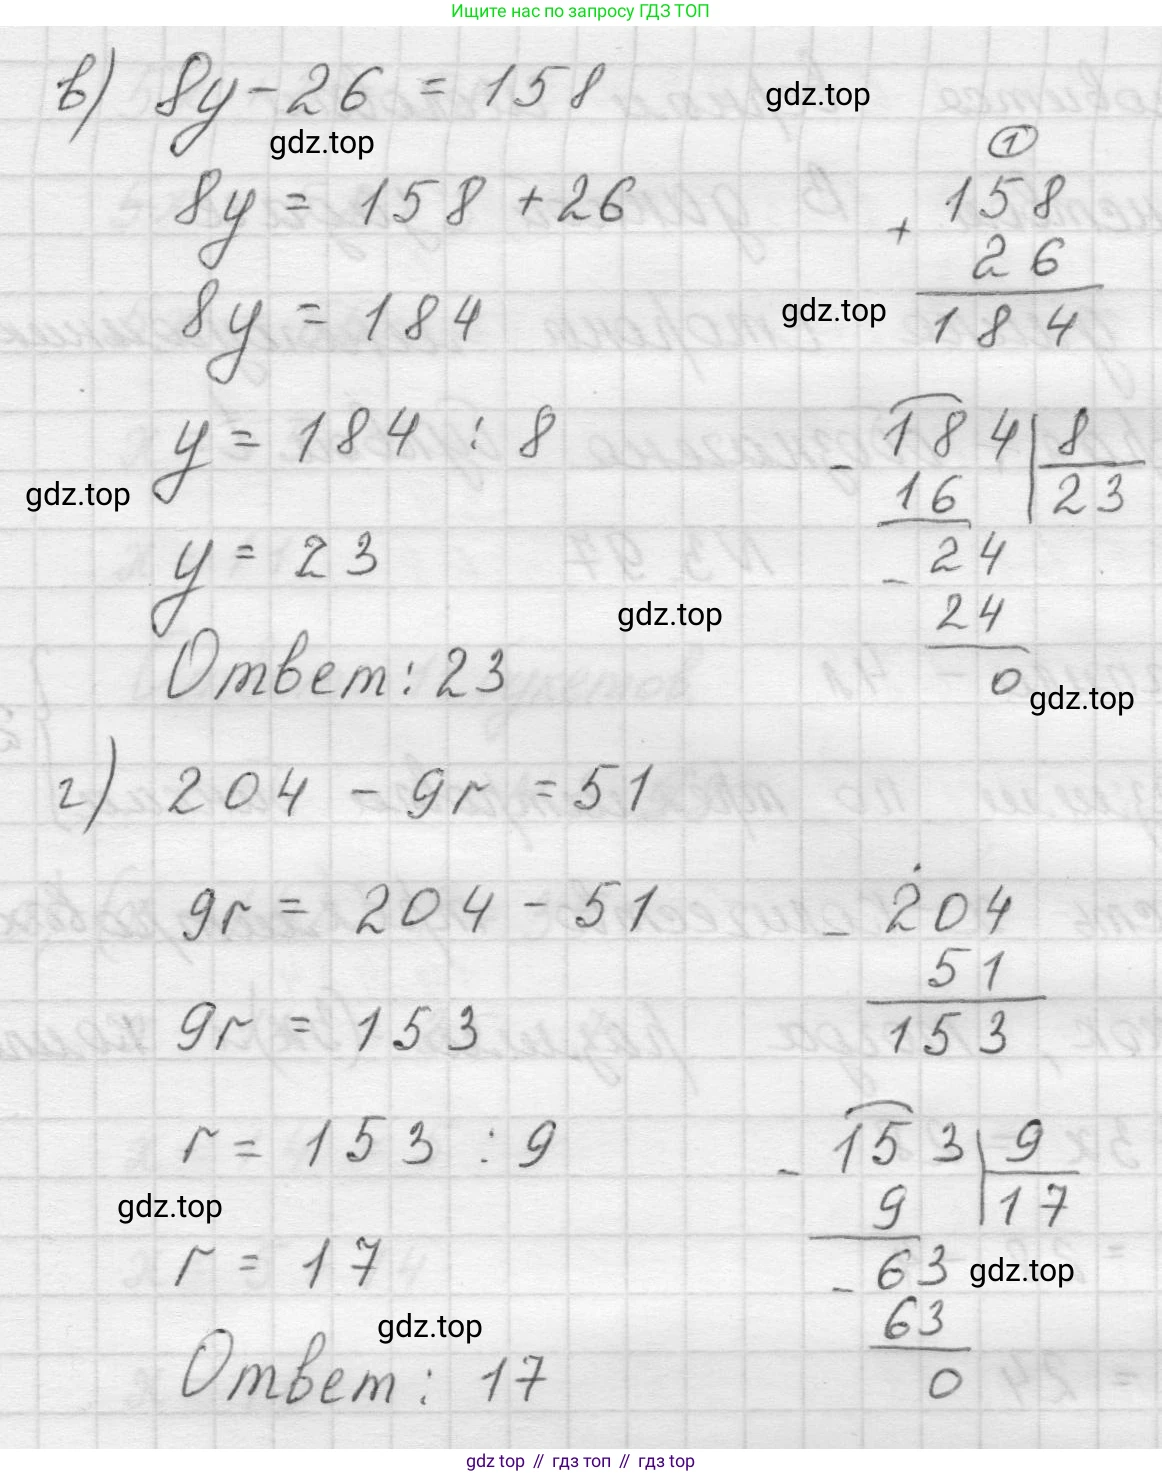 Ищите нас по запросу ГДЗ ТОП
в) 8y - 26 = 158
gdz.top
gdz.top
8y = 158 + 26
1
+ 158
26
184
8y = 184
gdz.top
y = 184 : 8
- 184 8
16 23
gdz.top
y = 23
- 24
24
0
gdz.top
Ответ: 23
gdz.top
г) 204 - 9r = 51
9r = 204 - 51
- 204
51
153
9r = 153
r = 153 : 9
- 153 9
9 17
gdz.top
r = 17
- 63
63
0
gdz.top
gdz.top
Ответ: 17
gdz top // гдз топ // гдз top